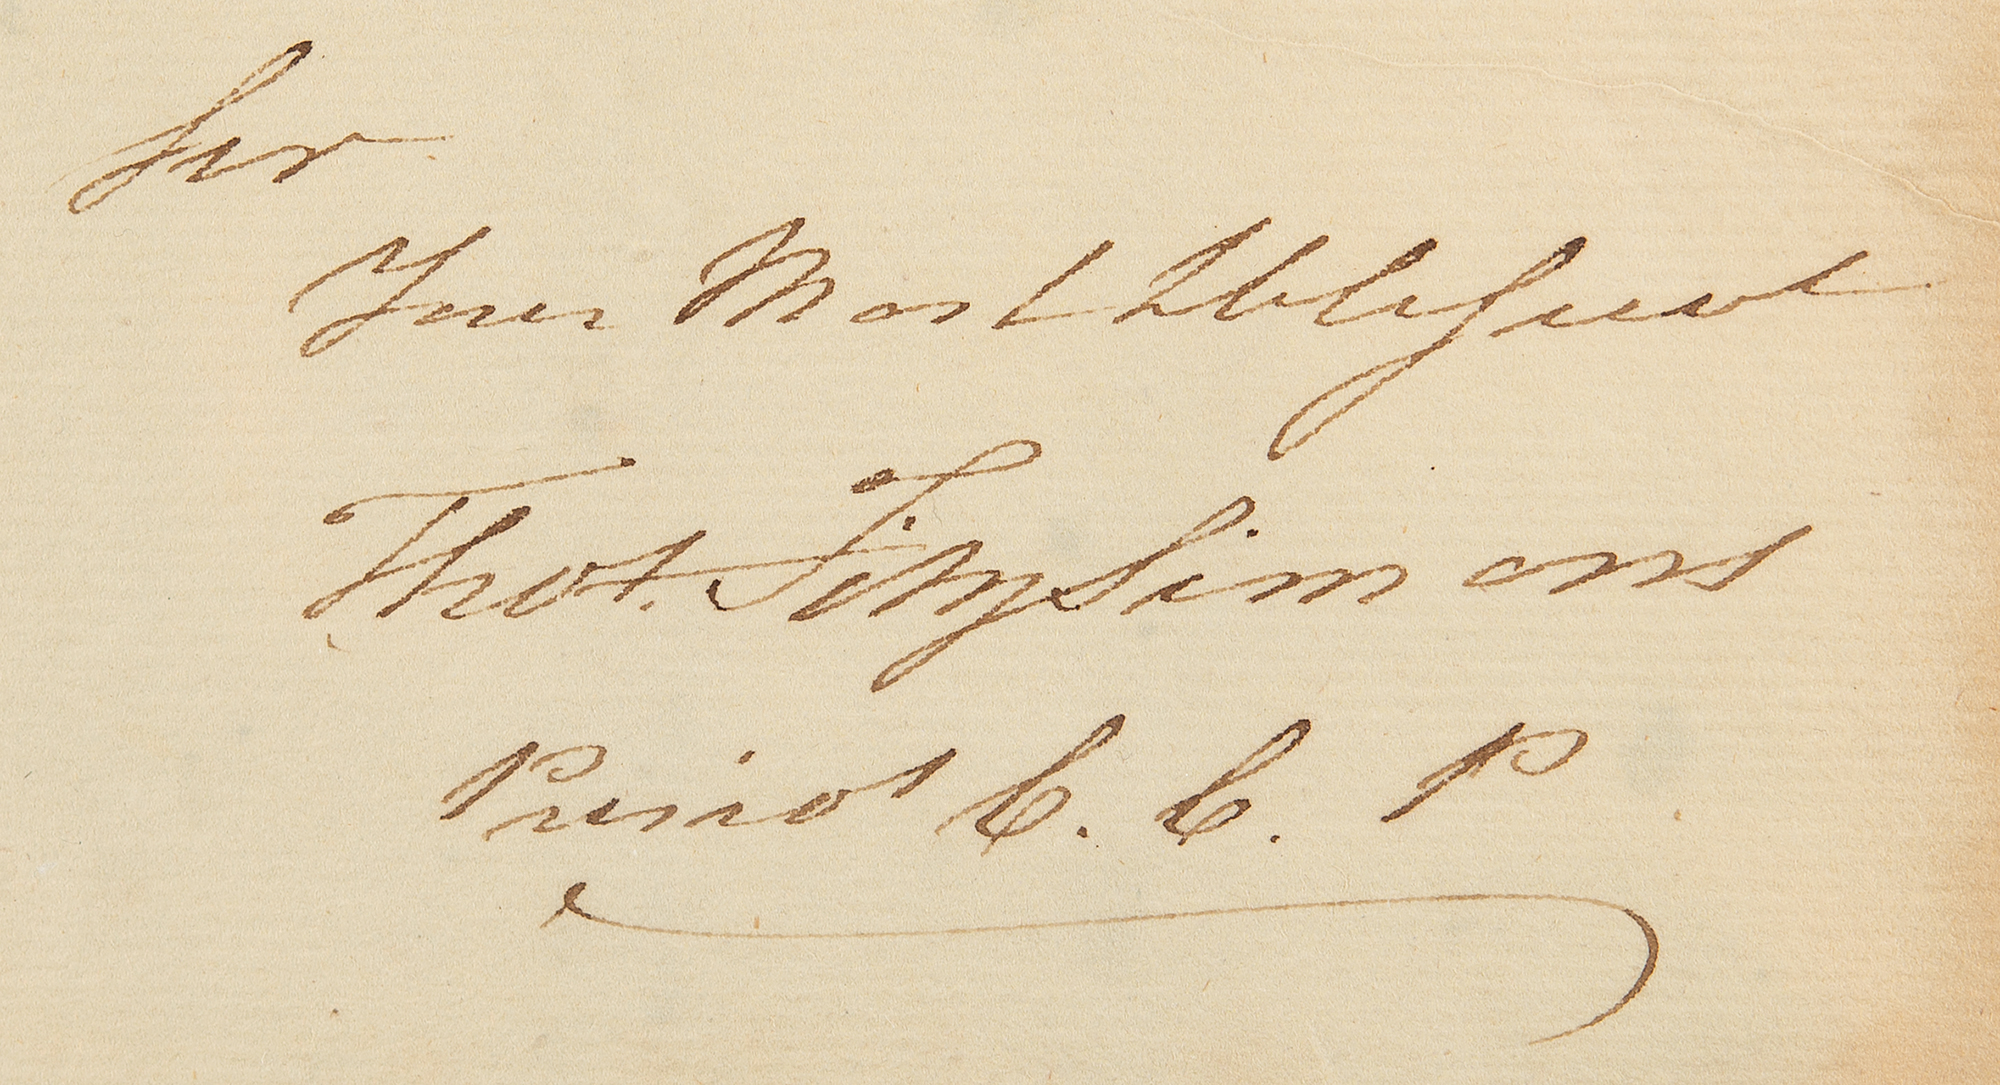 Sir
Your Most Obligun't
Thos. FitzSimons
Presidt C. C. P